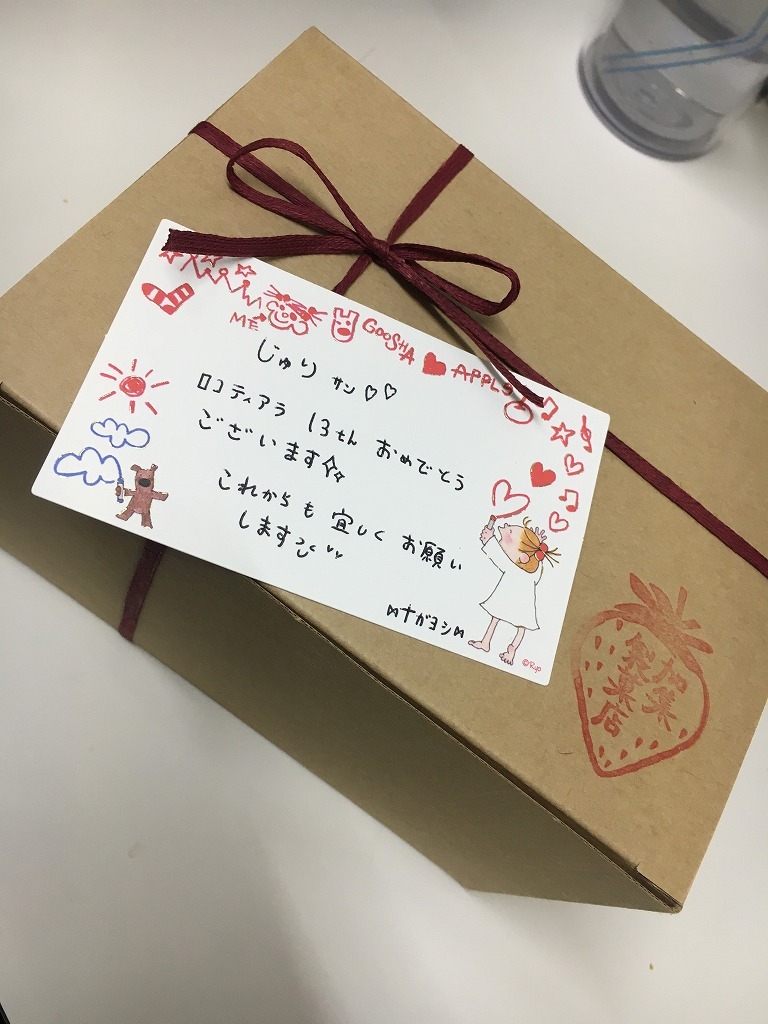 ME
GOOSHA
APPLS
じゅり サン♡♡
ロコティアラ 13th おめでとう
ございます☆
これからも 宜しく お願い
します
ナガヨシ
©Ryo
加集
製菓店